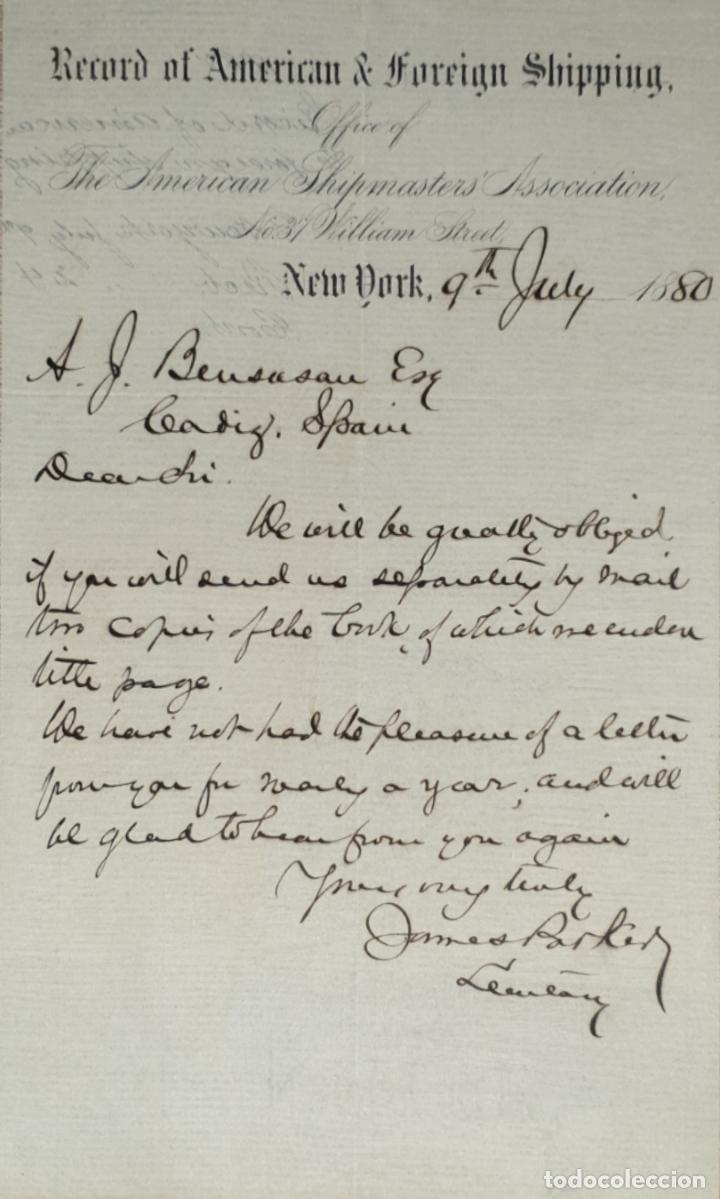 Record of American & Foreign Shipping.
Office of
The American Shipmasters' Association,
No. 37 William Street,
New York, 9th July 1880
A. J. Bensusan Esq
Cadiz, Spain
Dear Sir.
We will be greatly obliged
if you will send us separately by mail
two copies of the book, of which we enclose
title page.
We have not had the pleasure of a letter
from you for nearly a year, and will
be glad to hear from you again
Yours very truly
James Parker
Secretary
todocoleccion